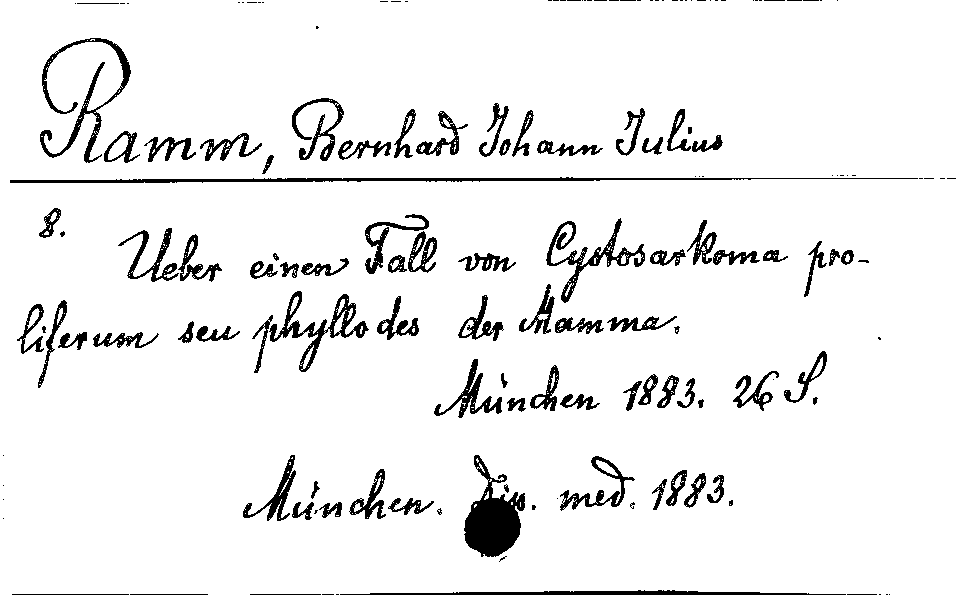 Ramm, Bernhard Johann Julius
8.
Ueber einen Fall von Cystosarkoma pro-
liferum seu phyllodes der Mamma.
München 1883. 26 S.
München. Diss. med. 1883.